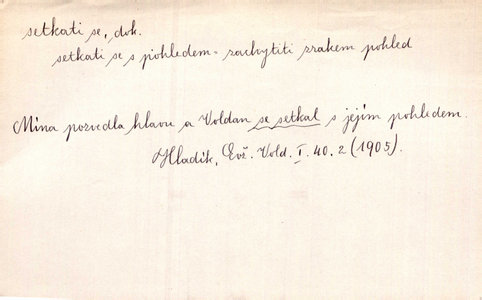 setkati se, dok.
setkati se s pohledem - zachytiti zrakem pohled
Mína pozvedla hlavu a Voldan se setkal s jejím pohledem.
Hladík, Evž. Vold. I. 40. 2 (1905).